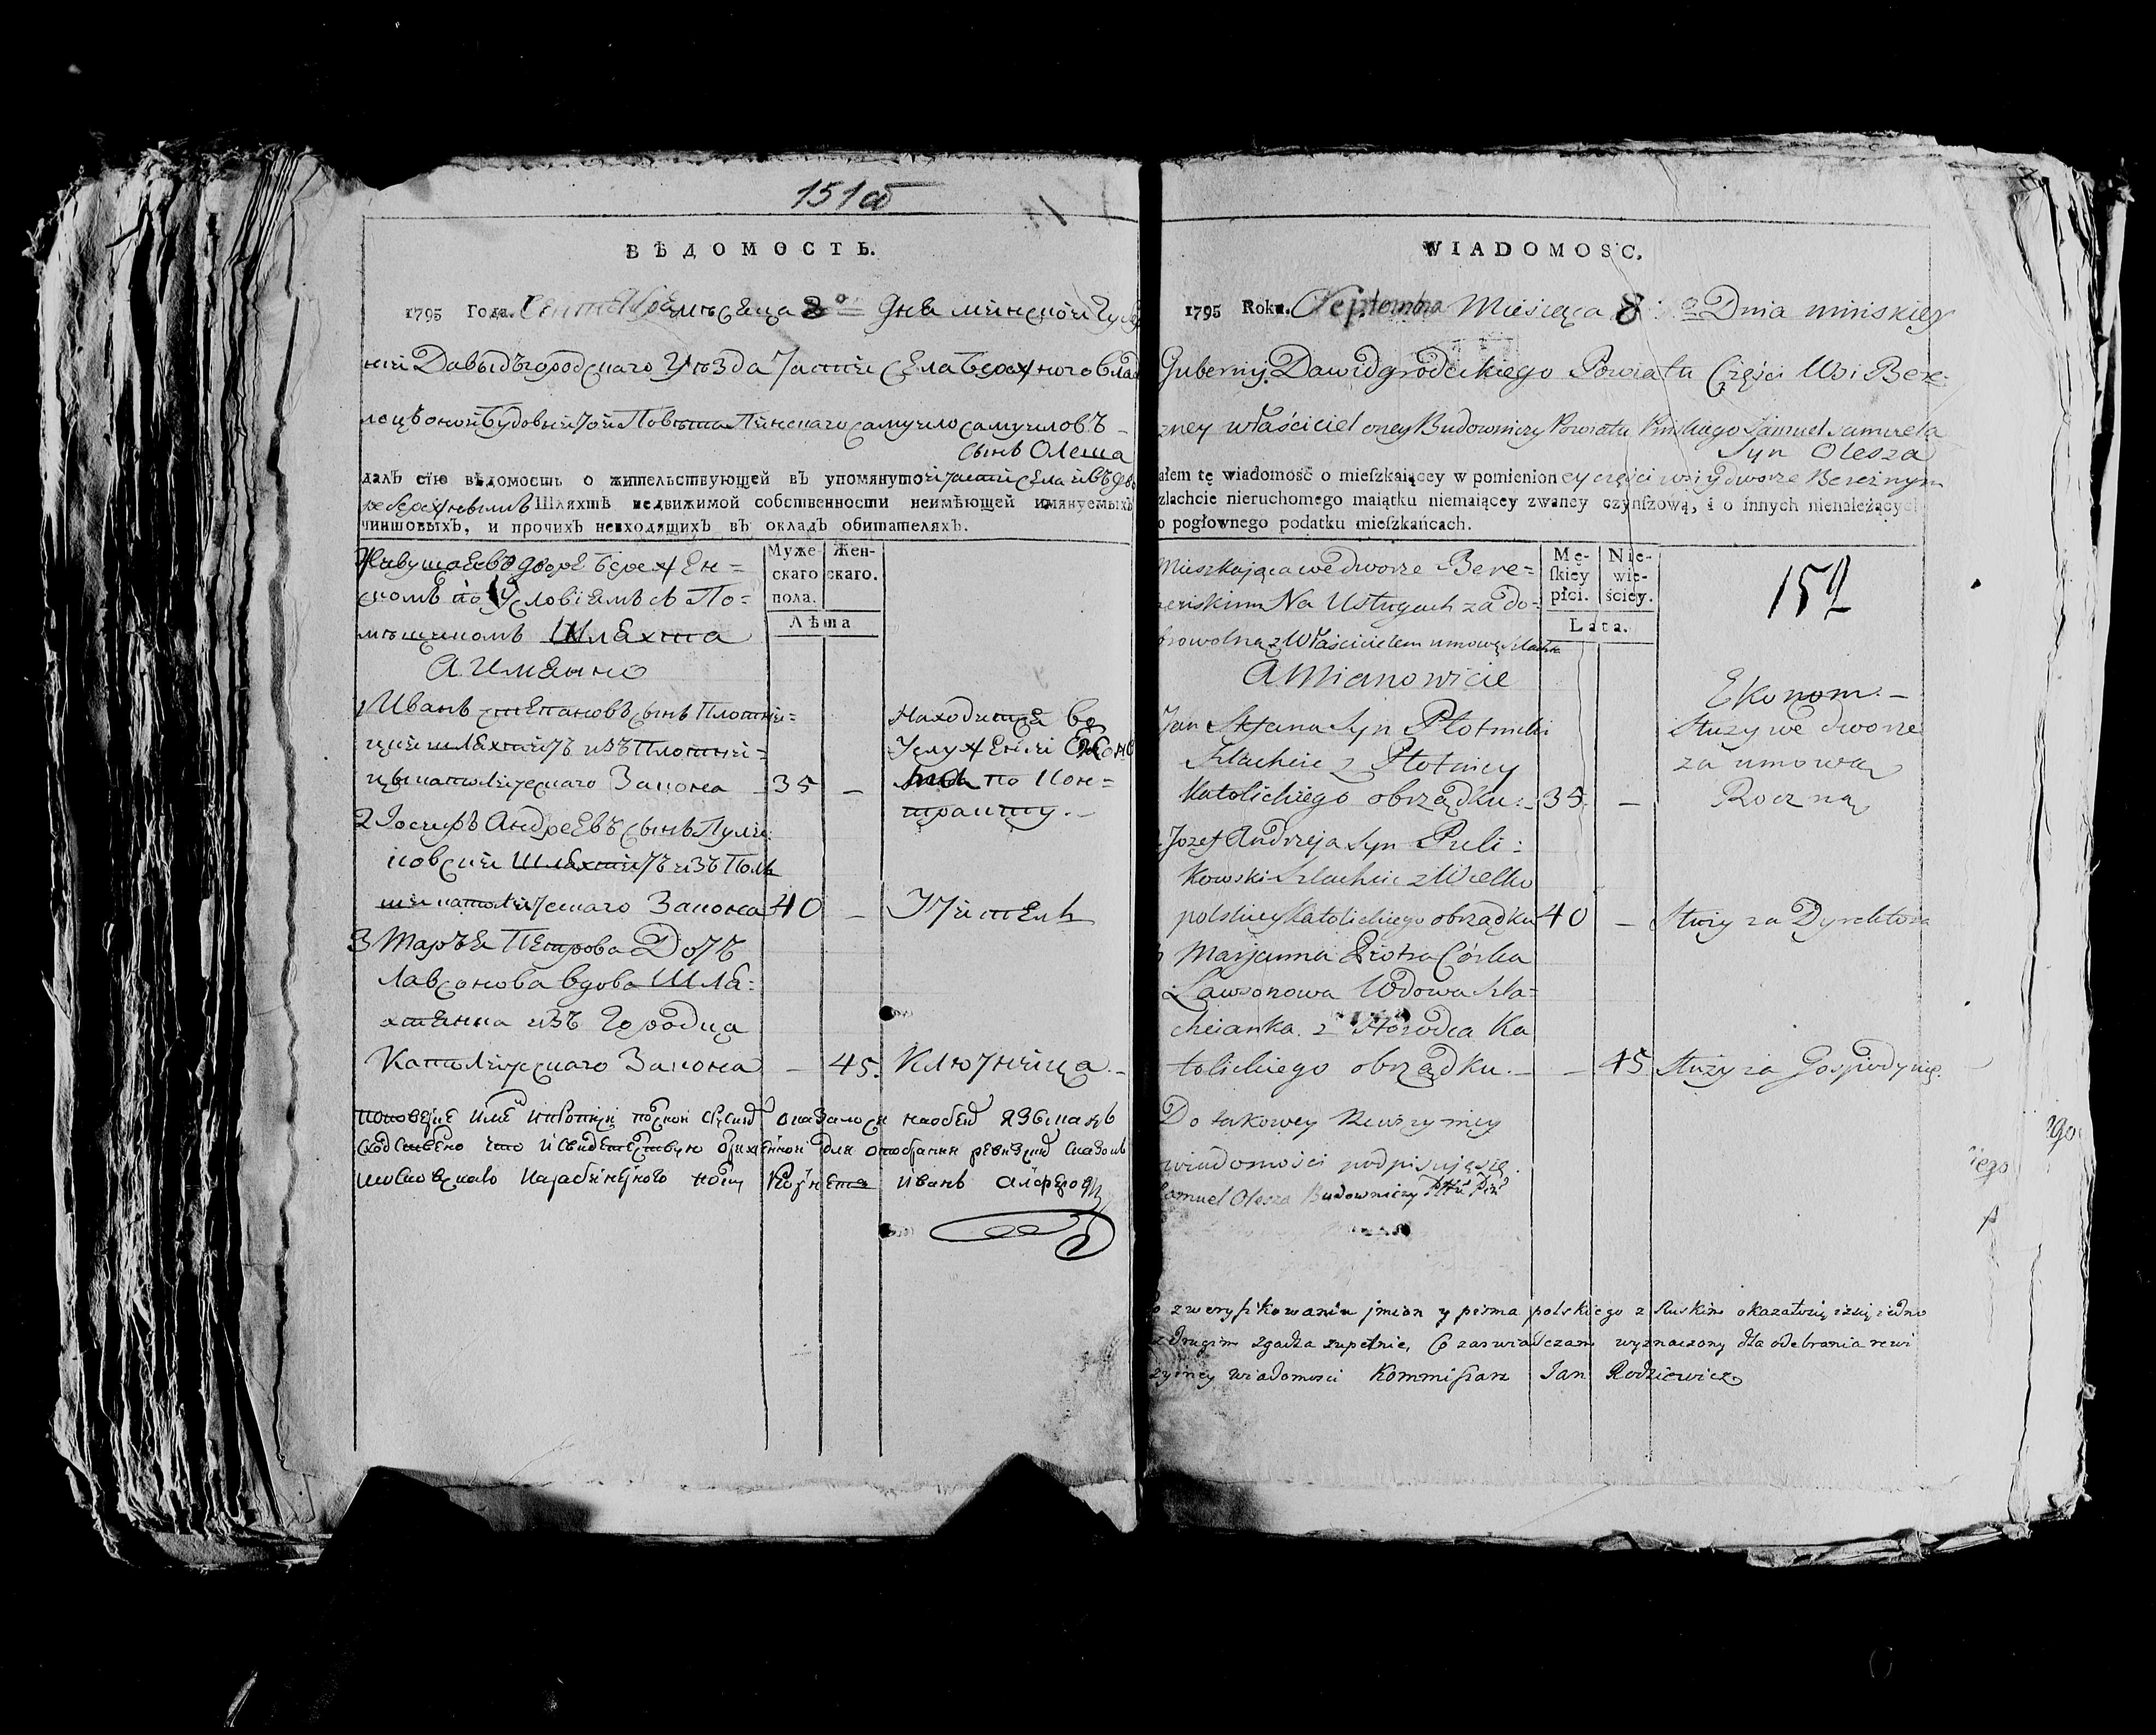 151 об
ВѢДОМОСТЬ.
1795 Года. Сентебра мѣсеца 8го Дна минской Губер
ніи Давыдъгородскаго Уезда Части Села Бережного влад
лецъ оной Будовничей Повета Пинскаго Самуило Самуиловъ
Сынъ Олеша
далъ сію вѣдомость о жительствующей въ упомянутой части села и въ дво
ре бережнымъ Шляхтѣ недвижимой собственности неимѣющей имянуемыхъ
чиншовыхъ, и прочихъ невходящихъ въ окладъ обитателяхъ.
Живущаево дворе Бережен=
скомъ по Условіемъ съ По=
мещикомъ Шлахта
А Имянно
Муже- Жен-
скаго скаго.
пола.
Лѣта
1 Иванъ степановъ сынъ Плотни=
цкий шлахтичъ изъ Плотни=
цы католическаго Закона 35 —
Находитца во
Услужении Еконо
по Кон=
тракту. —
2 Іосифъ Андреевъ сынъ Пули
ковский Шлахтичъ изъ Поль
ши католическаго Закона 40 — Учитель
3 Маръя Петрова Дочъ
Лавсонова вдова Шля=
хтянка изъ Городца
Католическаго Закона — 45. Ключница. —
сходственно что и свидетельствую определенной для отобрания ревизкихъ сказокъ
Иванъ
WIADOMOSC.
1795 Roku. Septembra Miesięca 8: go Dnia minskiey
Gubernij Dawidgrodeckiego Powiatu Części Wsi Bere:
zney właściciel oney Budowniczy Powiatu Pinskiego Samuel Samuela
Syn Olesza
ałem tę wiadomość o mieſzkaiącey w pomienioney części wsi y dworze Bereżnym
zlachcie nieruchomego maiątku niemaiącey zwaney czynſzową, i o innych nienależących
o pogłownego podatku mieſzkańcach.
Mieszkająca we dworze Bere=
żenskim Na Usługach za do=
browolną z Właścicielem umową szlachta
A Mianowicie
Mę- Nie-
ſkiey wie-
płci. ściey.
Lata.
152
Jan Stefana Syn Płotnicki
Szlachcic z Płotnicy
Katolickiego obrządku. — 35. —
Ekonom. —
Służy we dworze
za umową
Roczną
2 Jozef Andrzeja Syn Puli=
kowski Szlachcic z Wielko
polskiey Katolickiego obrządku 40 — Służy za Dyrektora
3 Marjanna Piotra Córka
Lawsonowa Wdowa Szla=
chcianka z Horodca Ka
tolickiego obrządku. — — 45 Służy za Gospodynię.
Do takowey Rewizyiney
wiadomości podpisuję się.
Samuel Olesza Budowniczy Pttu Piń
o zweryfikowaniu jmion y pisma polskiego z Ruskim okazałosię iż się jedno
z drugim zgadza zupełnie, Co zaswiadczam wyznaczony dla odebrania rewi
zyiney wiadomosci Kommiſsarz Jan Rodziewicz